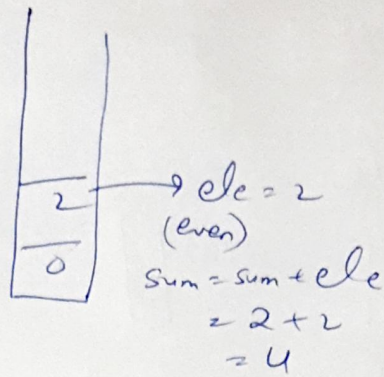 2 → ele = 2
(even)
0
sum = sum + ele
= 2 + 2
= 4